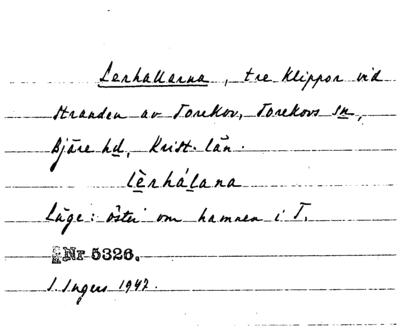 Lerhallarna, tre klippor vid
stranden av Torekov, Torekovs sn,
Bjäre hd, Krist. län.
lèrhálana
Läge: öster om hamnen i T.
Nr 5326.
I. Ingers 1942.